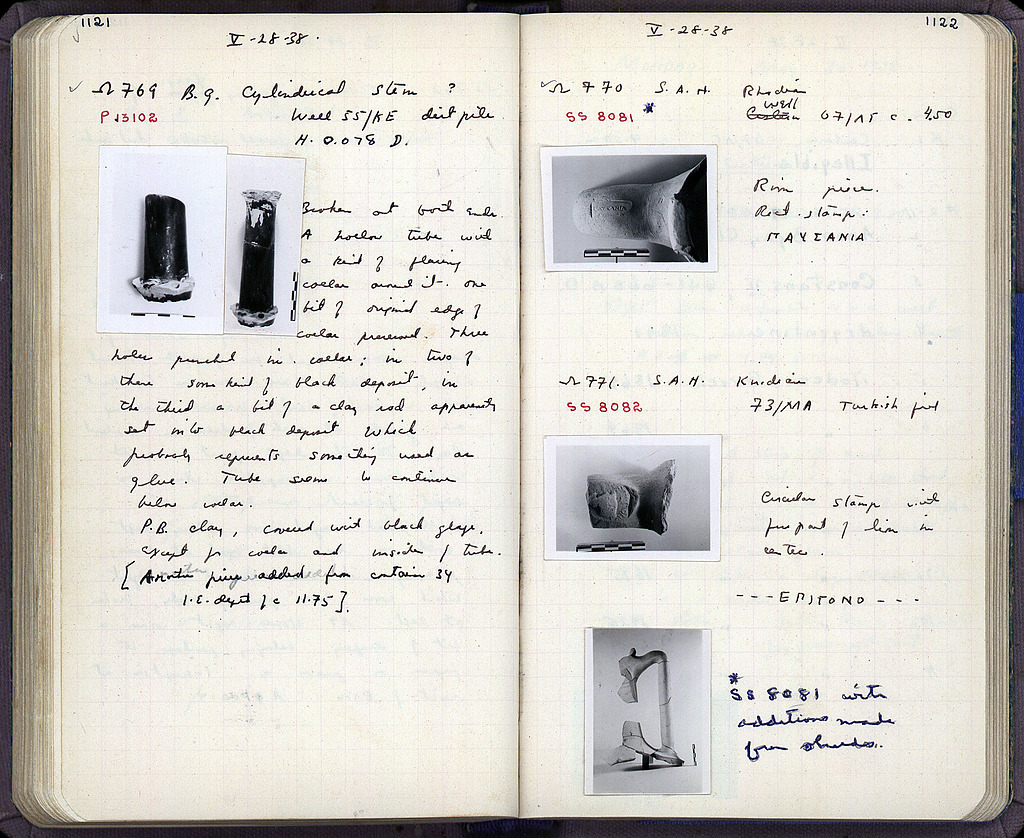 1121
V-28-38.
✓ Ω 769 B.g. Cylindrical stem ?
P 13102 Well SS/KE dirt pile.
H. 0.078 D.
Broken at both ends.
A hollow tube with
a kind of flaring
collar around it. One
bit of original edge of
collar preserved. Three
holes punched in collar; in two of
these some kind of black deposit in
the third a bit of a clay rod apparently
set into black deposit which
probably represents something used as
glue. Tube seems to continue
below collar.
P.B. clay, covered with black glaze,
except for collar and inside of tube.
[Another piece added from container 34
I.E. depth of c 11.75].
1122
V-28-38
✓ Ω 770 S.A.H. Rhodian
SS 8081 * Well 07/ΛΕ c. 4.50
Rim piece.
Rect. stamp:
ΠΑΥΣΑΝΙΑ
Ω 771. S.A.H. Knidian
SS 8082 73/MA Turkish pit
Circular stamp with
forepart of lion in
center.
---ΕΠΙΤΟΝΟ---
*
SS 8081 with
additions made
from sherds.